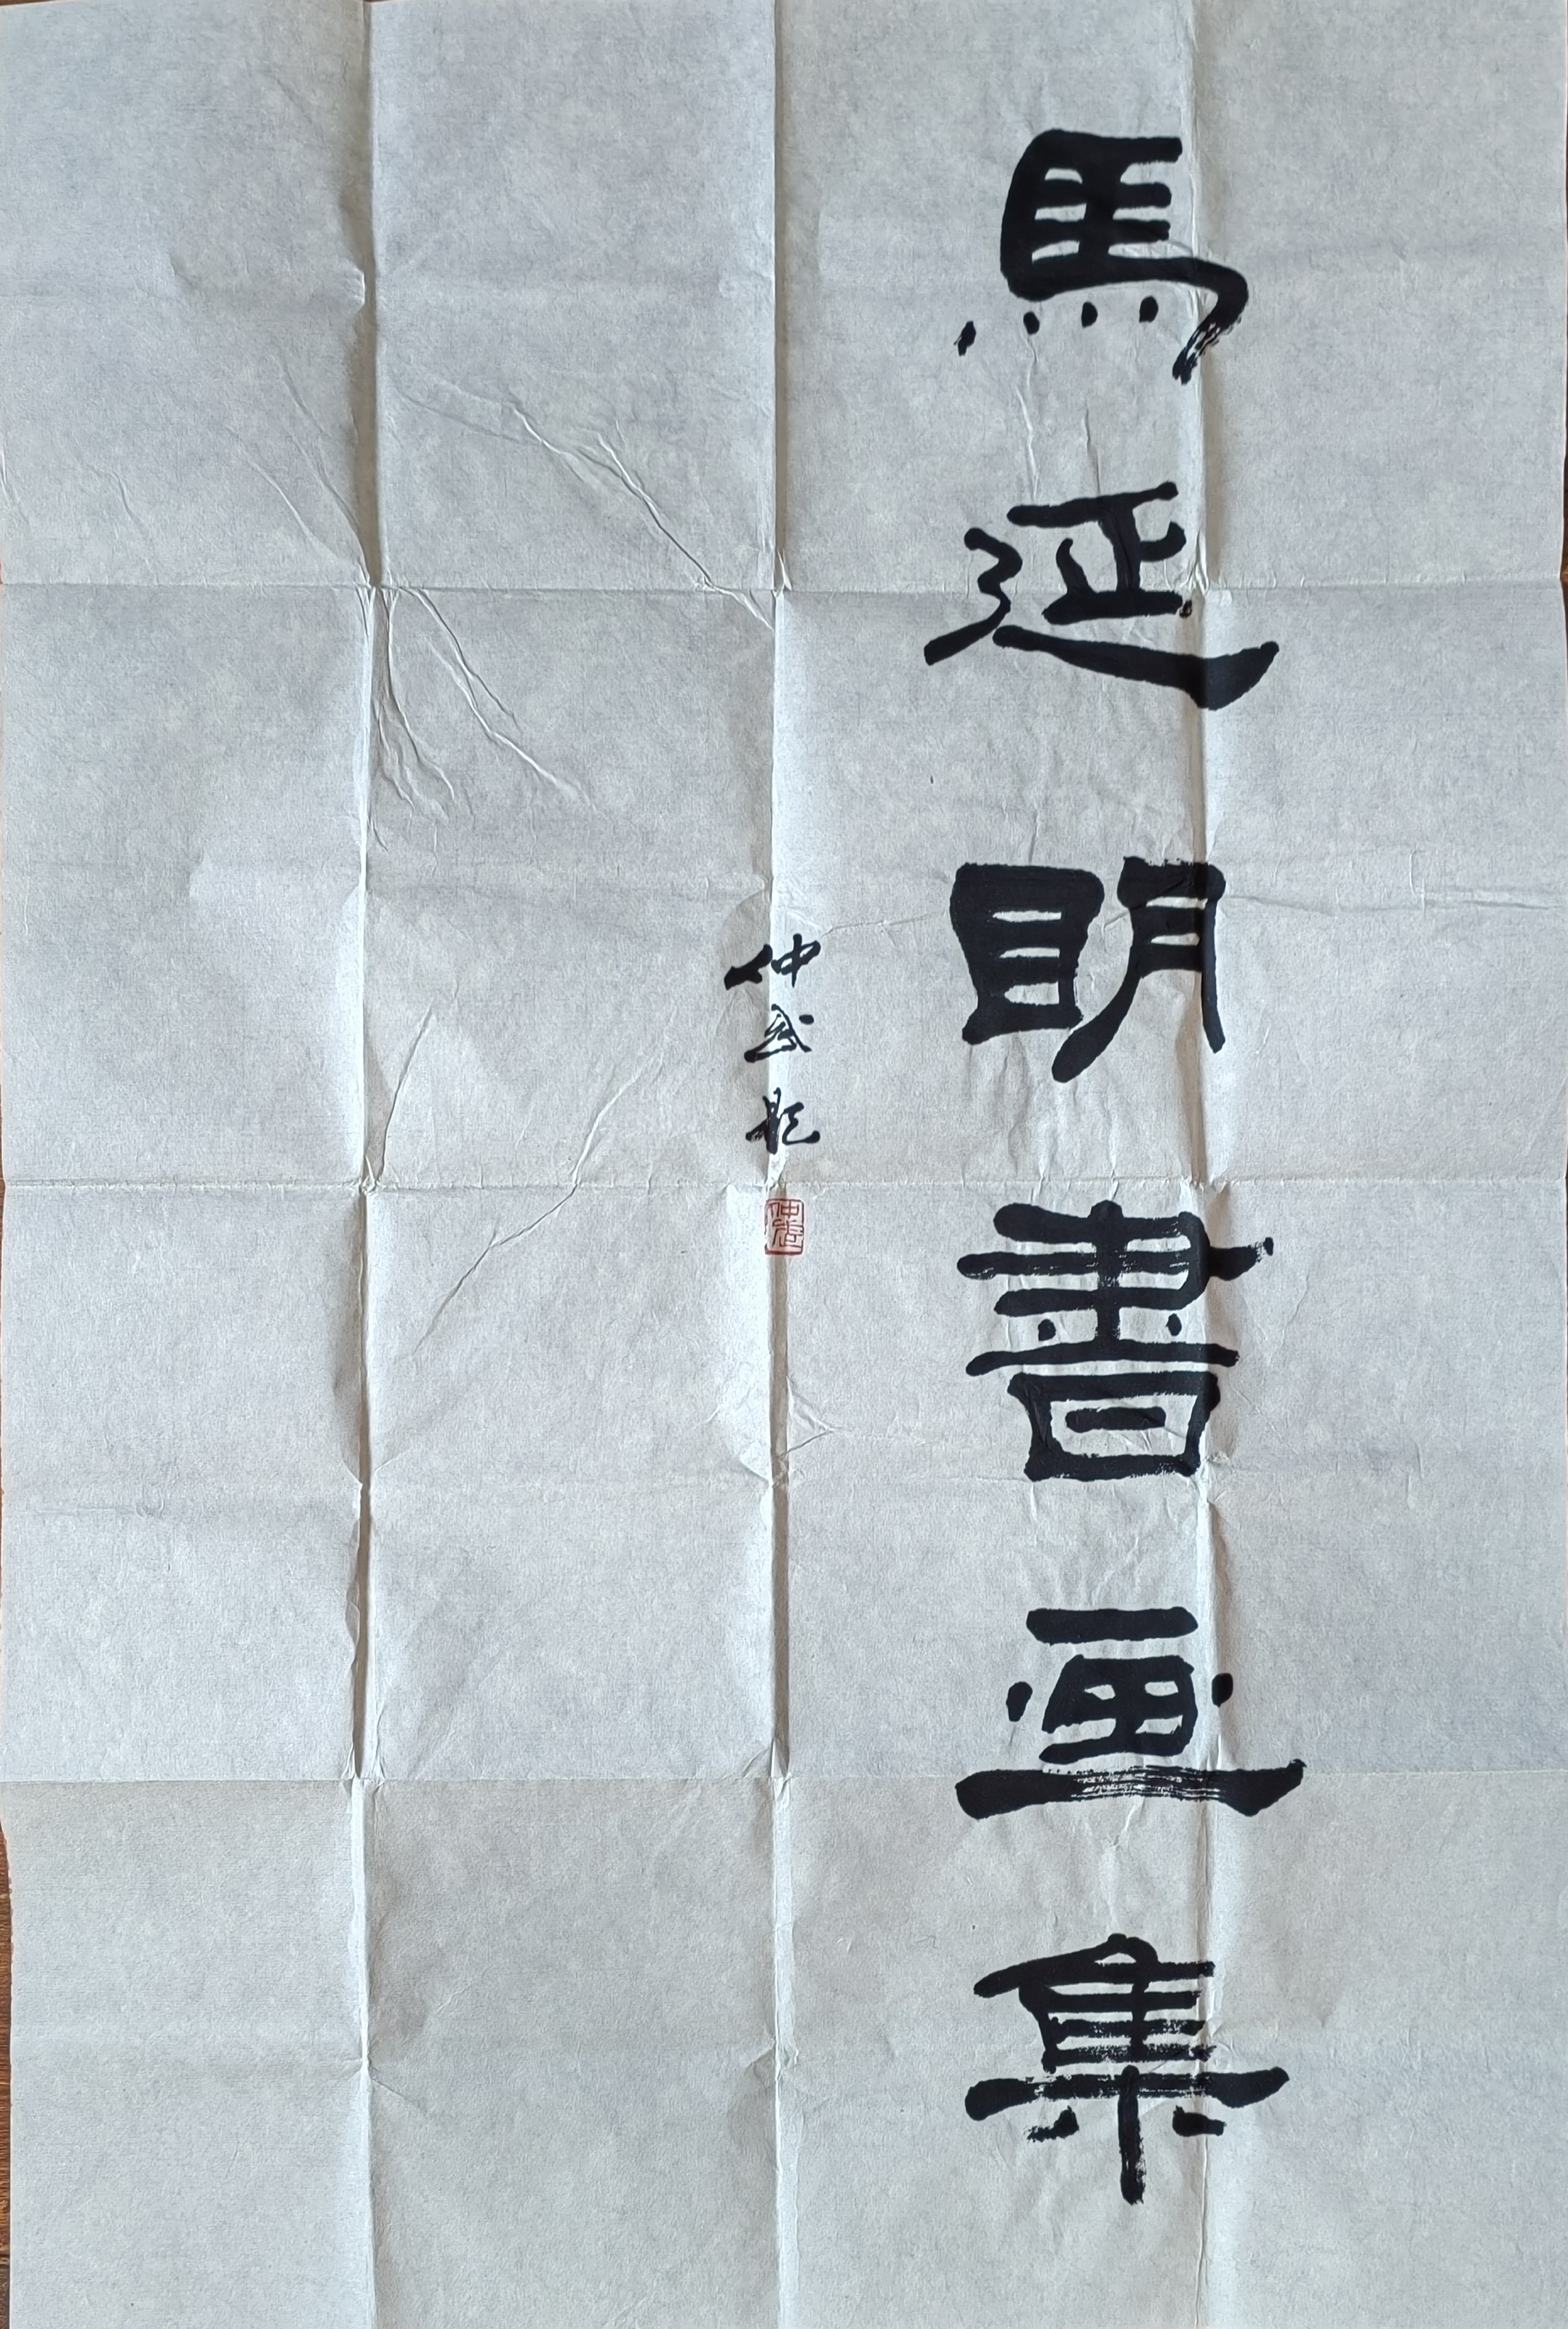 馬延明書画集
仲武題